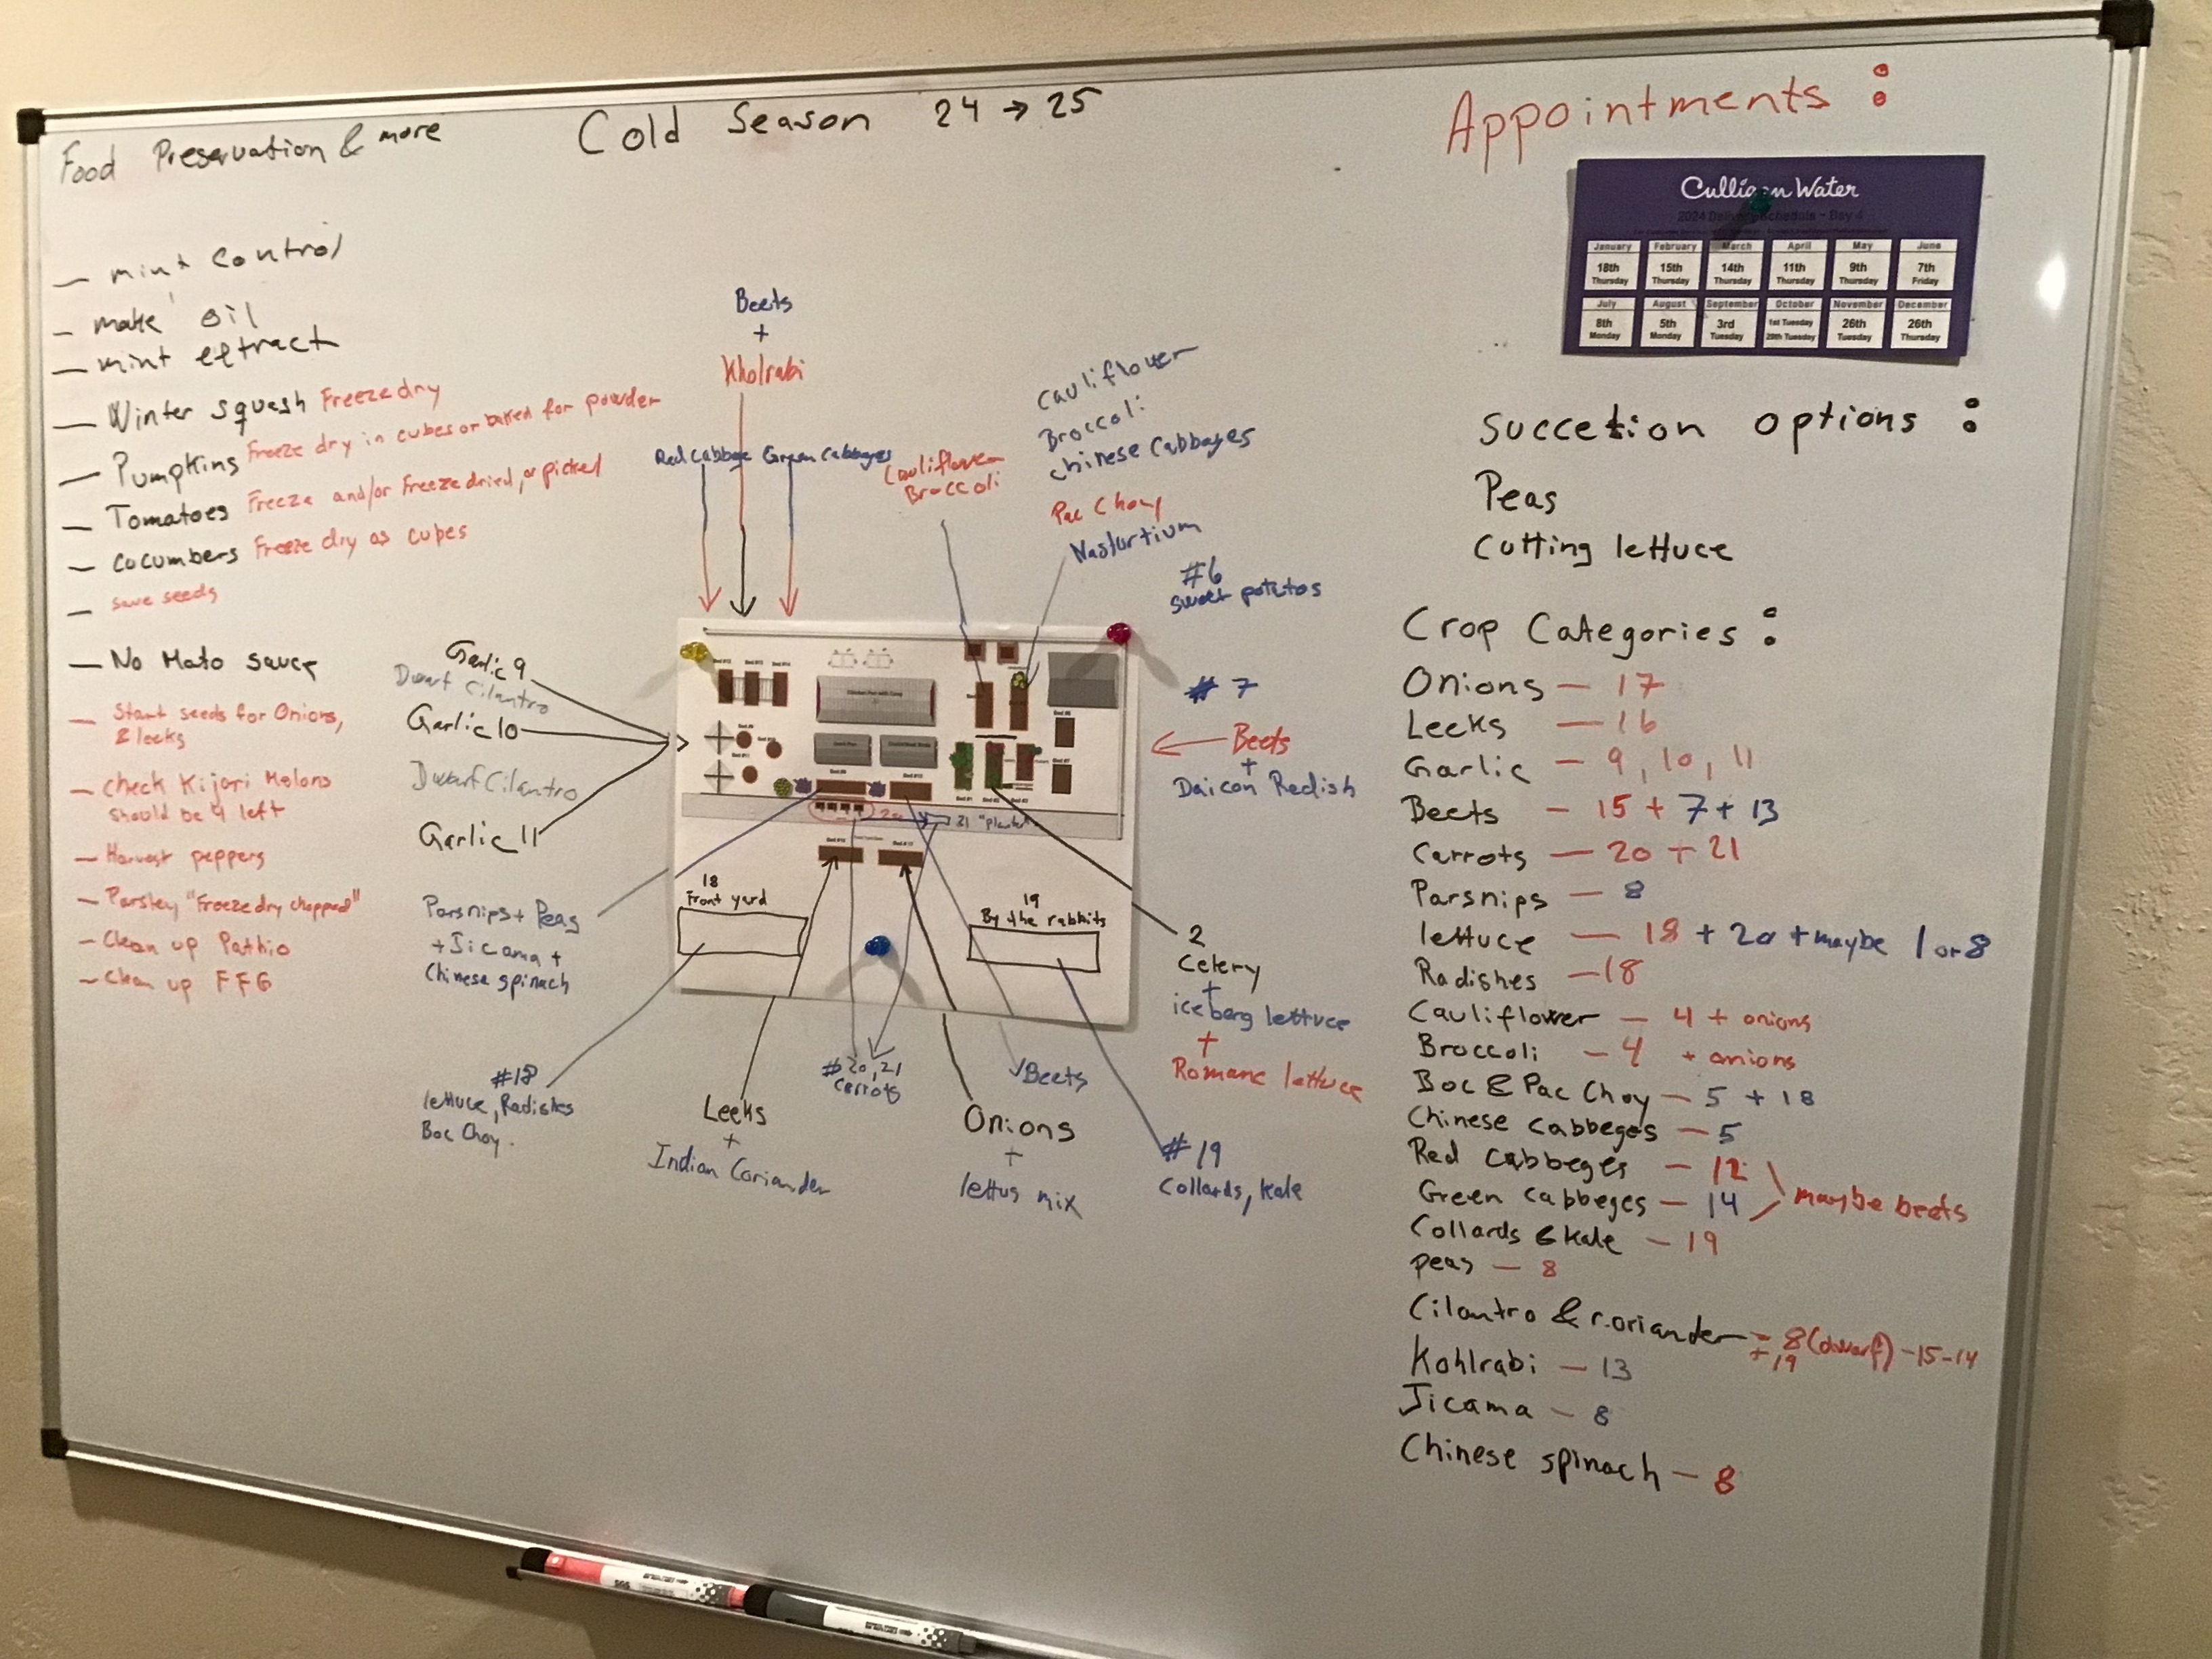 Food Preservation & more
Cold Season 24 → 25
Appointments :
— mint control
— make oil
— mint extract
— Winter squash Freeze dry
— Pumpkins Freeze dry in cubes or baked for powder
— Tomatoes Freeze and/or Freeze dried, or picked
— cocumbers Freeze dry as cubes
— save seeds
— No Mato sauce
— Start seeds for Onions,
& leeks
— check Kijari Melons
should be 4 left
— Harvest peppers
— Parsley "Freeze dry chopped"
— Clean up Pathio
— Clean up FFG
Beets
+
Kholrabi
Red Cabbage
Green Cabbages
Cauliflower
Broccoli
Cauliflower
Broccoli
chinese Cabbages
Pac Choy
Nasturtium
#6
Sweet potatos
# 7
← Beets
+
Daicon Redish
Garlic 9
Dwarf Cilantro
Garlic 10
Dwarf Cilantro
Garlic 11
Parsnips + Peas
+ Jicama +
Chinese spinach
Bed #12
Bed #13
Bed #14
21 "planter"
18
Front yard
19
By the rabbits
2
Celery
+
iceberg lettuce
+
Romane lettuce
#18
lettuce, Radishes
Boc Choy.
Leeks
+
Indian Coriander
#20, 21
Carrots
Onions
+
lettus mix
Beets
#19
Collards, Kale
Culligan Water
2024 Delivery Schedule - Day 4
January February March April May June
18th 15th 14th 11th 9th 7th
Thursday Thursday Thursday Thursday Thursday Friday
July August September October November December
8th 5th 3rd 1st Tuesday 26th 26th
Monday Monday Tuesday 29th Tuesday Tuesday Thursday
Succetion options :
Peas
Cutting lettuce
Crop Categories :
Onions — 17
Leeks — 16
Garlic — 9, 10, 11
Beets — 15 + 7 + 13
Carrots — 20 + 21
Parsnips — 8
lettuce — 18 + 20 + maybe 1 or 8
Radishes — 18
Cauliflower — 4 + onions
Broccoli — 4 + onions
Boc & Pac Choy — 5 + 18
Chinese Cabbeges — 5
Red Cabbeges — 12
Green Cabbeges — 14
maybe beets
Collards & Kale — 19
peas — 8
Cilantro & coriander = 8 (dwarf) - 15 - 14
+ 19
Kohlrabi — 13
Jicama — 8
Chinese spinach — 8